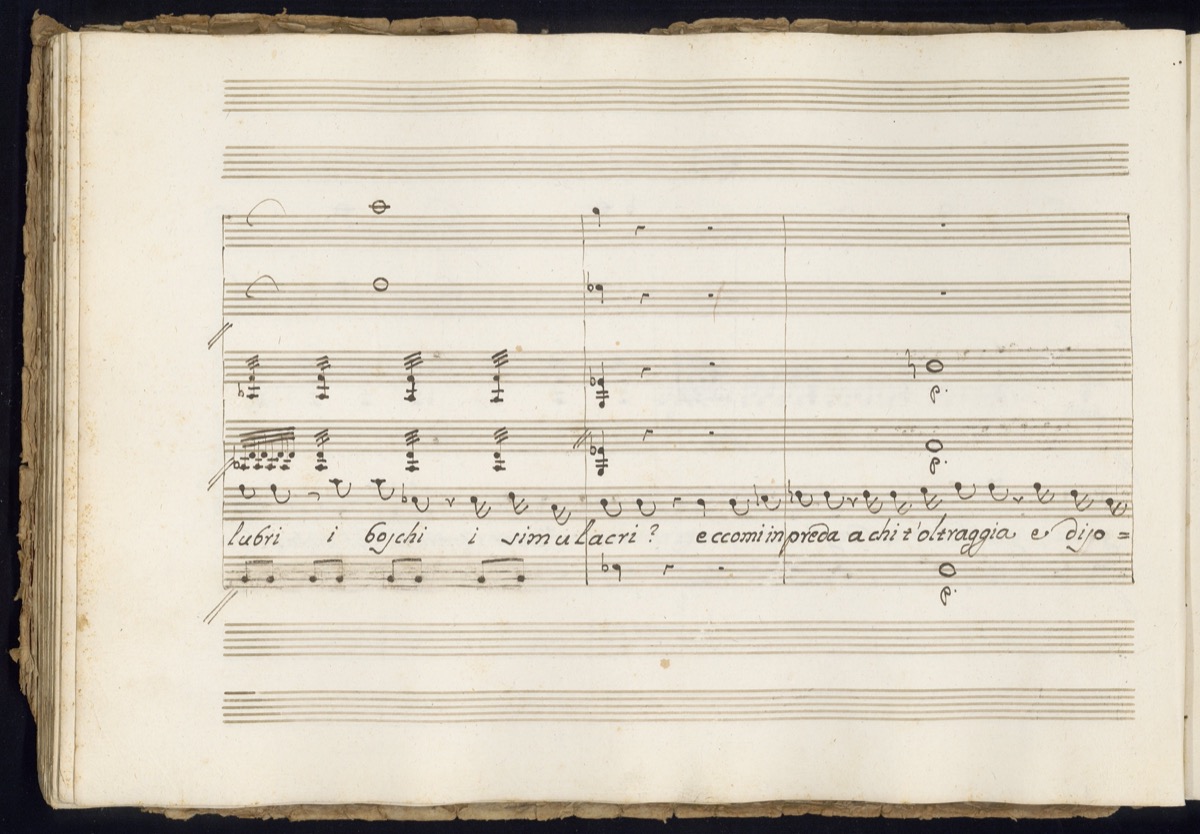 lubri i boschi i simulacri? eccomi in preda a chi t'oltraggia e dijo=